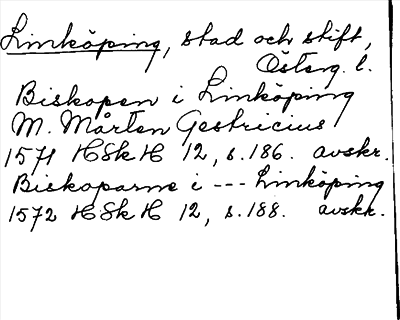 Linköping, stad och stift,
Österg. l.
Biskopen i Linköping
M. Mårten Gestricius
1571 HSkH 12, s. 186. avskr.
Biskoparne i --- Linköping
1572 HSkH 12, s. 188. avskr.